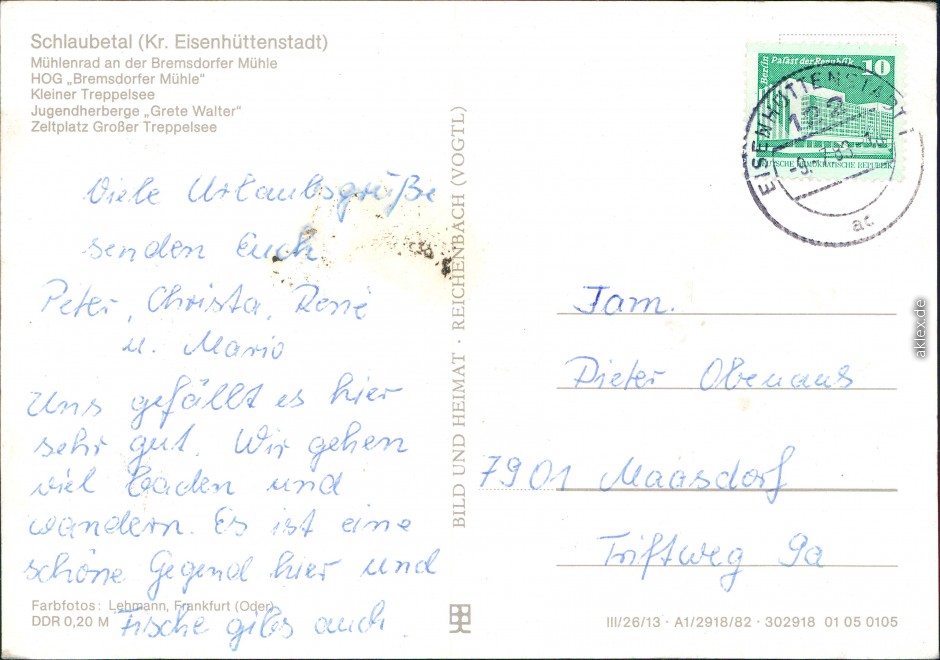 Schlaubetal (Kr. Eisenhüttenstadt)
Mühlenrad an der Bremsdorfer Mühle
HOG „Bremsdorfer Mühle“
Kleiner Treppelsee
Jugendherberge „Grete Walter“
Zeltplatz Großer Treppelsee
Viele Urlaubsgrüße
senden Euch
Peter, Christa, René
u. Mario
Uns gefällt es hier
sehr gut. Wir gehen
viel baden und
wandern. Es ist eine
schöne Gegend hier und
Fische gibts auch.
Farbfotos: Lehmann, Frankfurt (Oder)
DDR 0,20 M
BILD UND HEIMAT · REICHENBACH (VOGTL)
Berlin Palast der Republik 10
DEMOKRATISCHE REPUBLIK
EISENHÜTTENSTADT 1
122
ac
Fam.
Dieter Obenaus
7901 Maasdorf
Triftweg 9a
III/26/13 · A1/2918/82 · 302918 01 05 0105
aklex.de